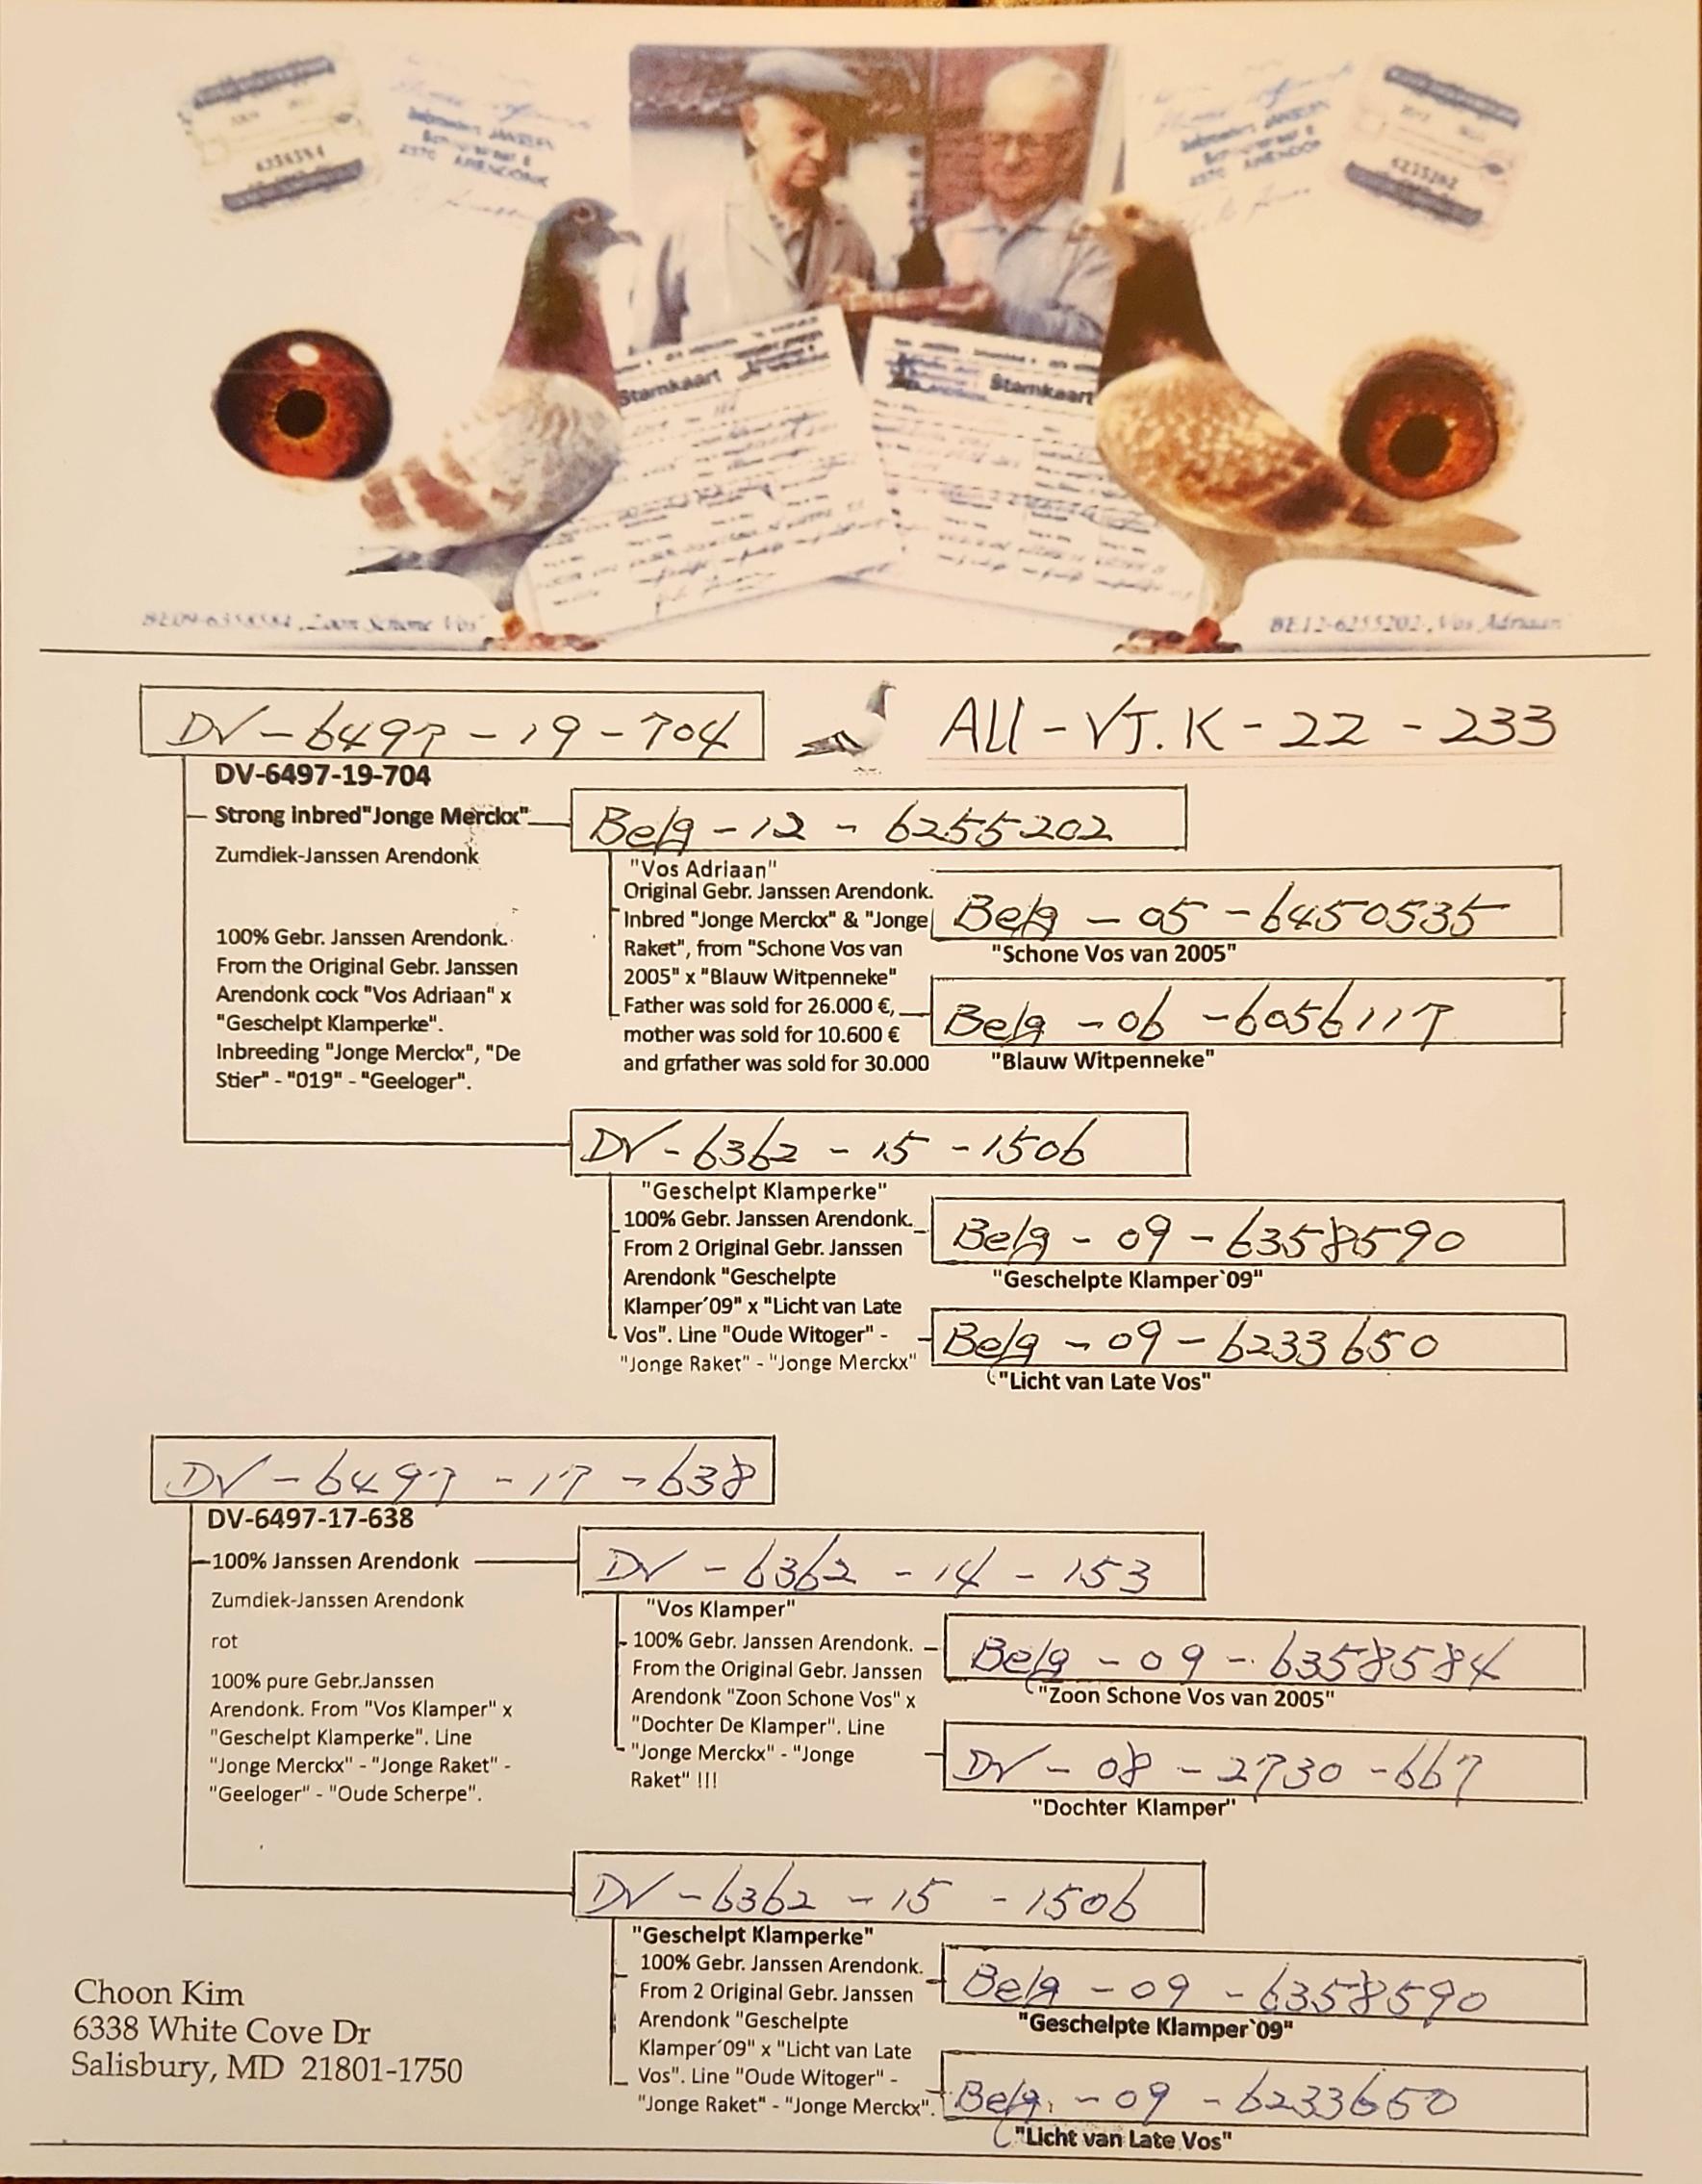 Stamkaart
Stamkaart
BE09-6358584 „Zoon Schone Vos"
BE12-6255202 „Vos Adriaan"
DV-6497-19-704
ALL-VJ.K-22-233
DV-6497-19-704
Strong inbred"Jonge Merckx"
Zumdiek-Janssen Arendonk
100% Gebr. Janssen Arendonk.
From the Original Gebr. Janssen
Arendonk cock "Vos Adriaan" x
"Geschelpt Klamperke".
Inbreeding "Jonge Merckx", "De
Stier" - "019" - "Geeloger".
Belg - 12 - 6255202
"Vos Adriaan"
Original Gebr. Janssen Arendonk.
Inbred "Jonge Merckx" & "Jonge
Raket", from "Schone Vos van
2005" x "Blauw Witpenneke"
Father was sold for 26.000 €,
mother was sold for 10.600 €
and grfather was sold for 30.000
Belg - 05 - 6450535
"Schone Vos van 2005"
Belg - 06 - 6056117
"Blauw Witpenneke"
DV - 6362 - 15 - 1506
"Geschelpt Klamperke"
100% Gebr. Janssen Arendonk.
From 2 Original Gebr. Janssen
Arendonk "Geschelpte
Klamper´09" x "Licht van Late
Vos". Line "Oude Witoger" -
"Jonge Raket" - "Jonge Merckx"
Belg - 09 - 6358590
"Geschelpte Klamper`09"
Belg - 09 - 6233650
"Licht van Late Vos"
DV - 6497 - 17 - 638
DV-6497-17-638
100% Janssen Arendonk
Zumdiek-Janssen Arendonk
rot
100% pure Gebr.Janssen
Arendonk. From "Vos Klamper" x
"Geschelpt Klamperke". Line
"Jonge Merckx" - "Jonge Raket" -
"Geeloger" - "Oude Scherpe".
DV - 6362 - 14 - 153
"Vos Klamper"
100% Gebr. Janssen Arendonk.
From the Original Gebr. Janssen
Arendonk "Zoon Schone Vos" x
"Dochter De Klamper". Line
"Jonge Merckx" - "Jonge
Raket" !!!
Belg - 09 - 6358584
"Zoon Schone Vos van 2005"
DV - 08 - 2730 - 667
"Dochter Klamper"
DV - 6362 - 15 - 1506
"Geschelpt Klamperke"
100% Gebr. Janssen Arendonk.
From 2 Original Gebr. Janssen
Arendonk "Geschelpte
Klamper´09" x "Licht van Late
Vos". Line "Oude Witoger" -
"Jonge Raket" - "Jonge Merckx".
Belg - 09 - 6358590
"Geschelpte Klamper`09"
Belg - 09 - 6233650
"Licht van Late Vos"
Choon Kim
6338 White Cove Dr
Salisbury, MD 21801-1750